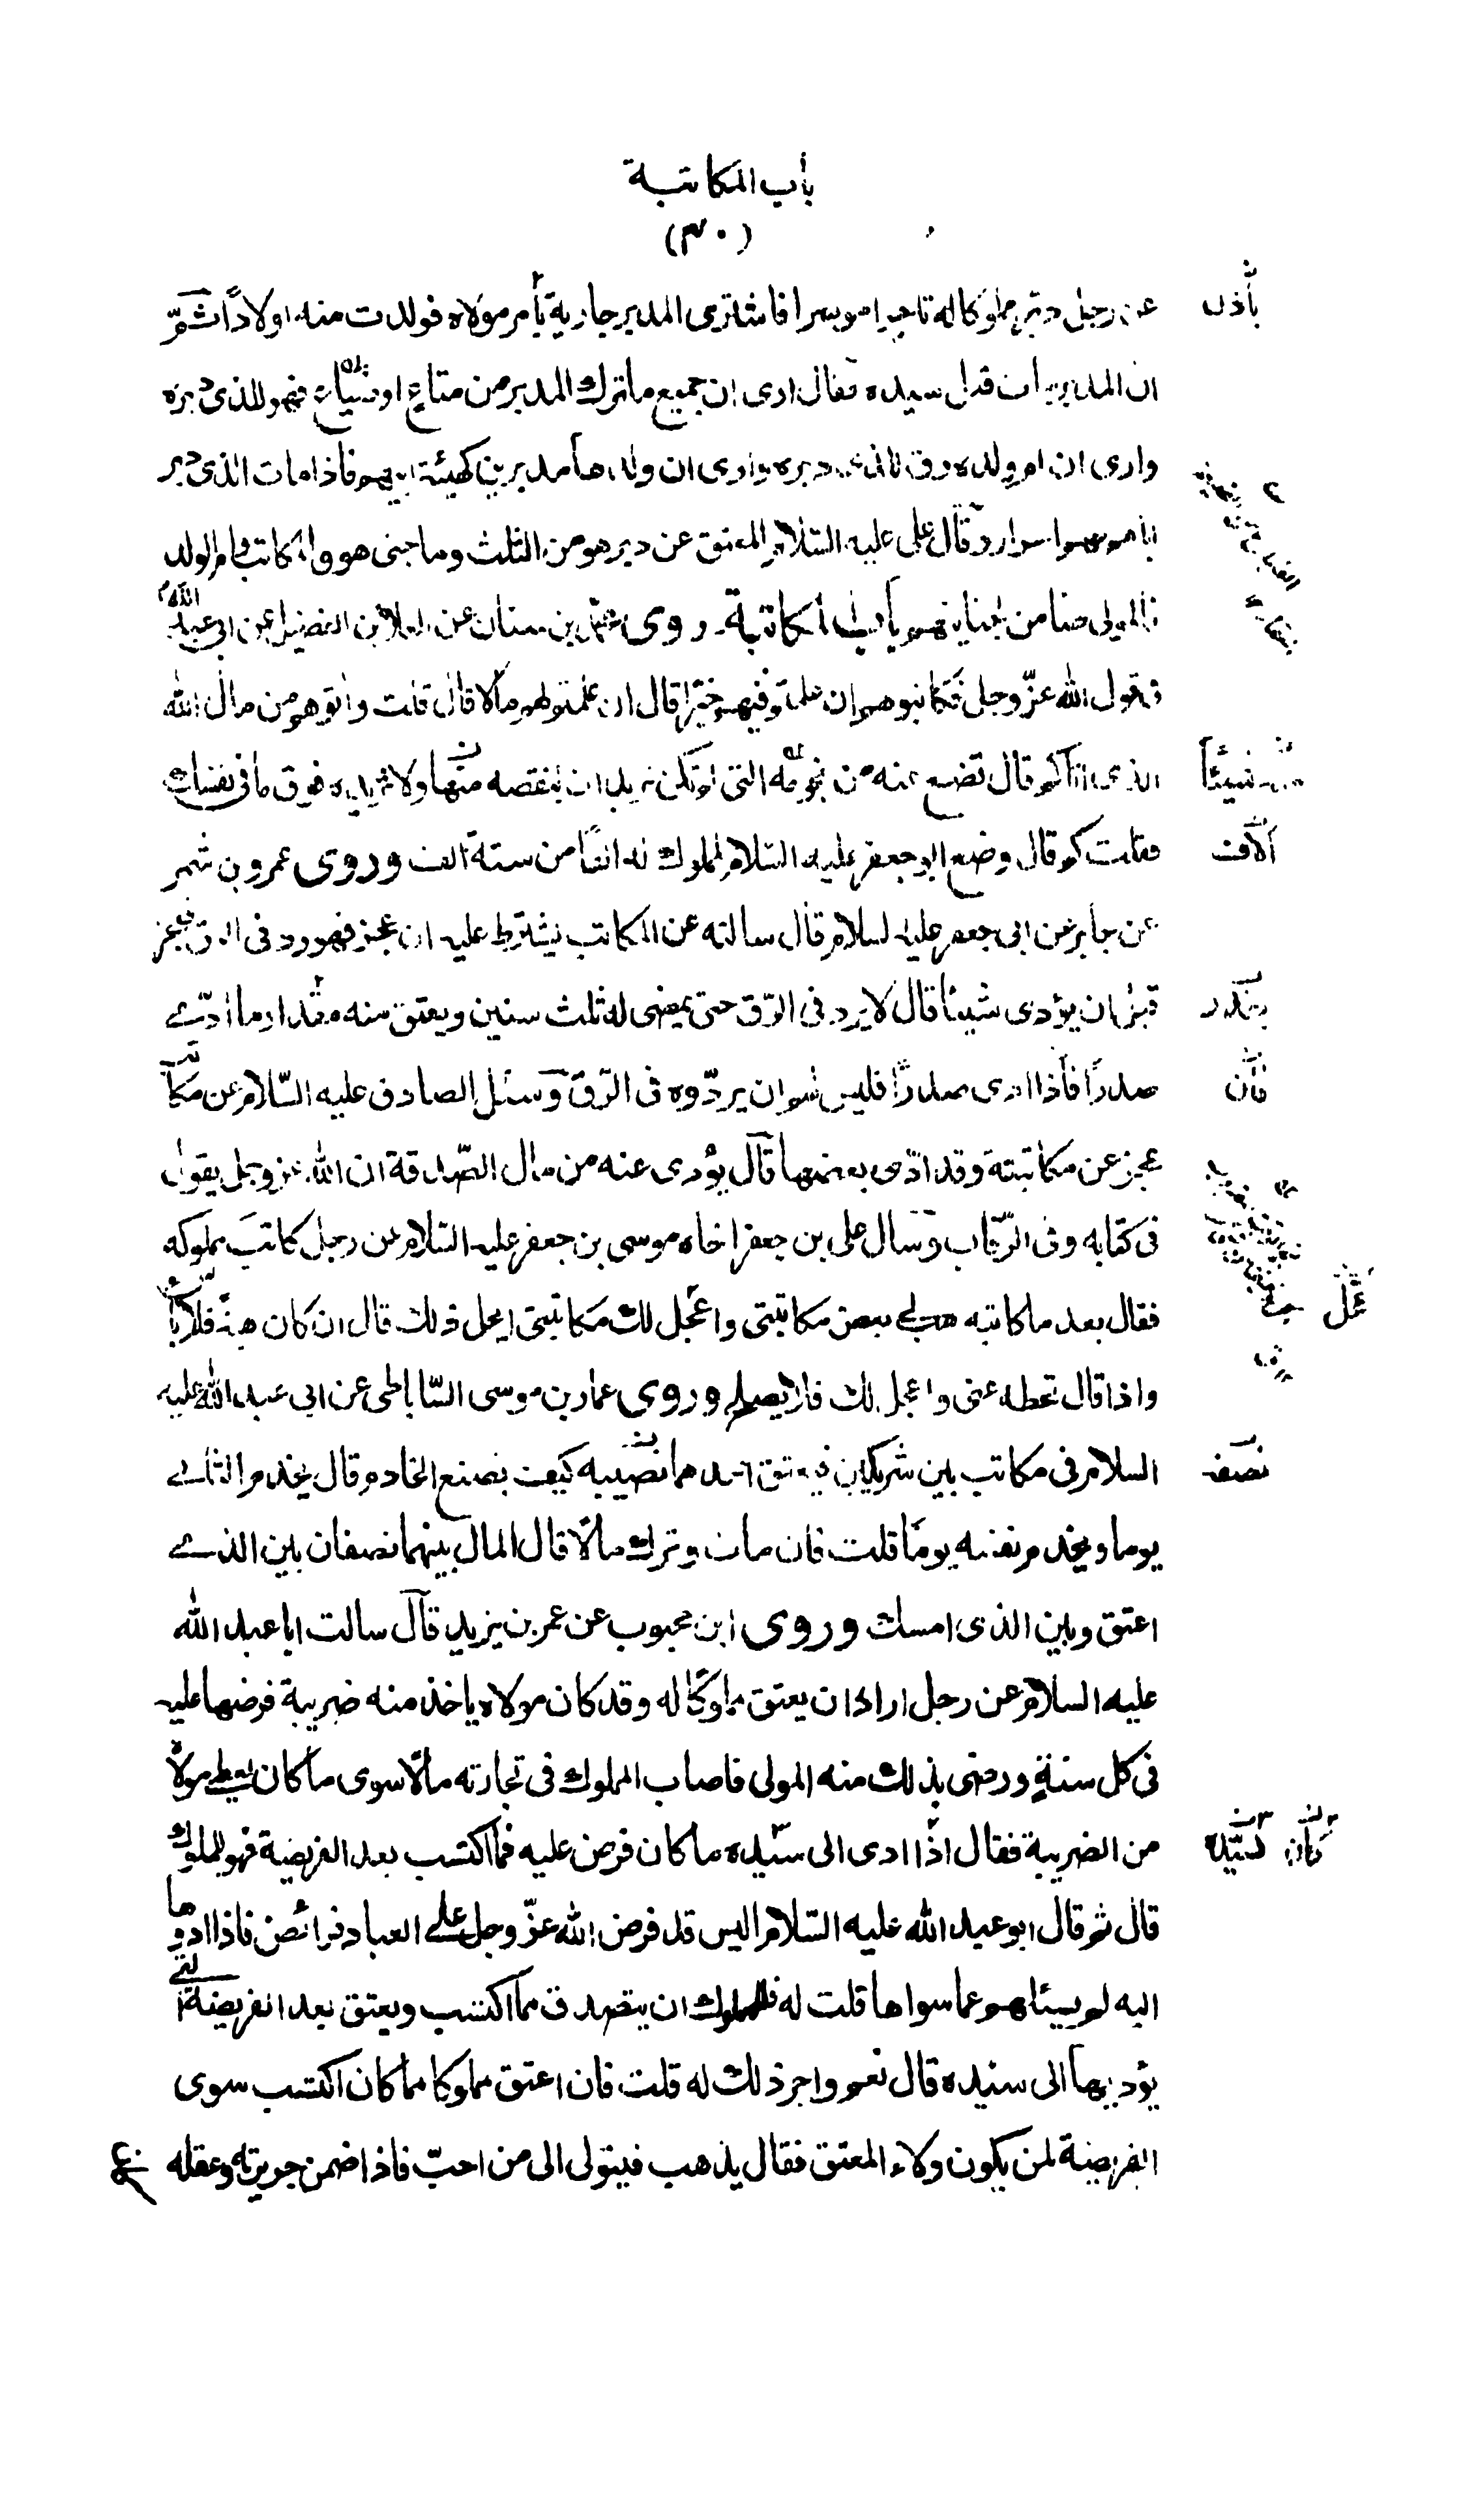 باب المكاتبة
(٣٠)
عن رجل دبر مملوكا له تاجرا موسرا فاشترى المدبر جارية بأمر مولاه فولدت منه اولاداً ثم
ان المدبر مات قبل سيده فقال ارى ان جميع ما ترك المدبر من متاع او ضياع فهو للذى دبره
وارى ان ام ولده رق للذى دبره وارى ان ولدها مدبرين كهيئة ابيهم فاذا مات الذى دبر
اباهم فهم احرار وقال على عليه السلام المعتق عن دبر هو من الثلث وما جنى هو والمكاتب وام الولد
فالمولى ضامن لجنايتهم باب المكاتبة روى محمد بن سنان عن العلا بن الفضيل عن ابى عبد الله
فى قول الله عزّ وجل فكاتبوهم ان علمتم فيهم خيرا قال ان علمتم لهم مالا قال قلت واتوهم من مال الله
الذى اتاكم قال تضع عنه من نجومه التى لم تكن تريد ان تنقصه منها ولا تزيده فوق ما فى نفسك
فقلت كم قال وضع ابو جعفر عليه السلام لمملوك له الفا من ستة الف وروى عمرو بن شمر
عن جابر عن ابى جعفر عليه السلام قال سالته عن المكاتب يشترط عليه ان عجز فهو رد فى الرق فعجز
قبل ان يؤدى شيئا قال لا يرد فى الرق حتى يمضى له ثلث سنين ويعتق منه مقدار ما ادّى
صدراً فاذا ادى صدراً فليس لهم ان يردّوه فى الرق وسئل الصادق عليه السّلام عن مكاتب
عجز عن مكاتبته وقد ادّى بعضها قال يؤدى عنه من مال الصّدقة ان الله عز وجل يقول
فى كتابه وفى الرّقاب وسال على بن جعفر اخاه موسى بن جعفر عليه السلام عن رجل كاتب مملوكه
فقال بعد ما كاتبه هب لى بعض مكاتبتى واعجل لك مكاتبتى ايحل ذلك قال ان كان هبة فلا باس
واذا قال تحط عنى واعجل لك فلا يصلح وروى عمار بن موسى السّاباطى عن ابى عبد الله عليه
السلام فى مكاتب بين شريكين فيعتق احدهما نصيبه كيف يصنع الخادم قال يخدم الثانى
يوما ويخدم نفسه يوما قلت فان مات وترك مالا قال المال بينهما نصفان بين الذى
اعتق وبين الذى امسك وروى ابن محبوب عن عمر بن يزيد قال سالت ابا عبد الله
عليه السلام عن رجل اراد ان يعتق مملوكا له وقد كان مولاه ياخذ منه ضريبة فرضها عليه
فى كل سنةٍ ورضى بذلك منه المولى فاصاب المملوك فى تجارته مالًا سوى ما كان يعطى مولاه
من الضريبة فقال اذا ادى الى سيّده ما كان فرض عليه فما اكتسب بعد الفريضة فهو للمملوك
قال ثم قال ابو عبد الله عليه السّلام اليس قد فرض الله عزّ وجل على العباد فرائض فاذا ادوها
اليه لم يسئلهم عما سواها قلت له فللمملوك ان يتصدق مما اكتسب ويعتق بعد الفريضة التى
يؤديها الى سيده قال نعم واجر ذلك له قلت فان اعتق مملوكا مما كان اكتسب سوى
الفريضة لمن يكون ولاء المعتق فقال يذهب فيتولى الى من احبّ فاذا ضمن جريرته وعقله
بأذن
شيئاً
آلاف
فان
عجّل
نصف
كان لسيّده